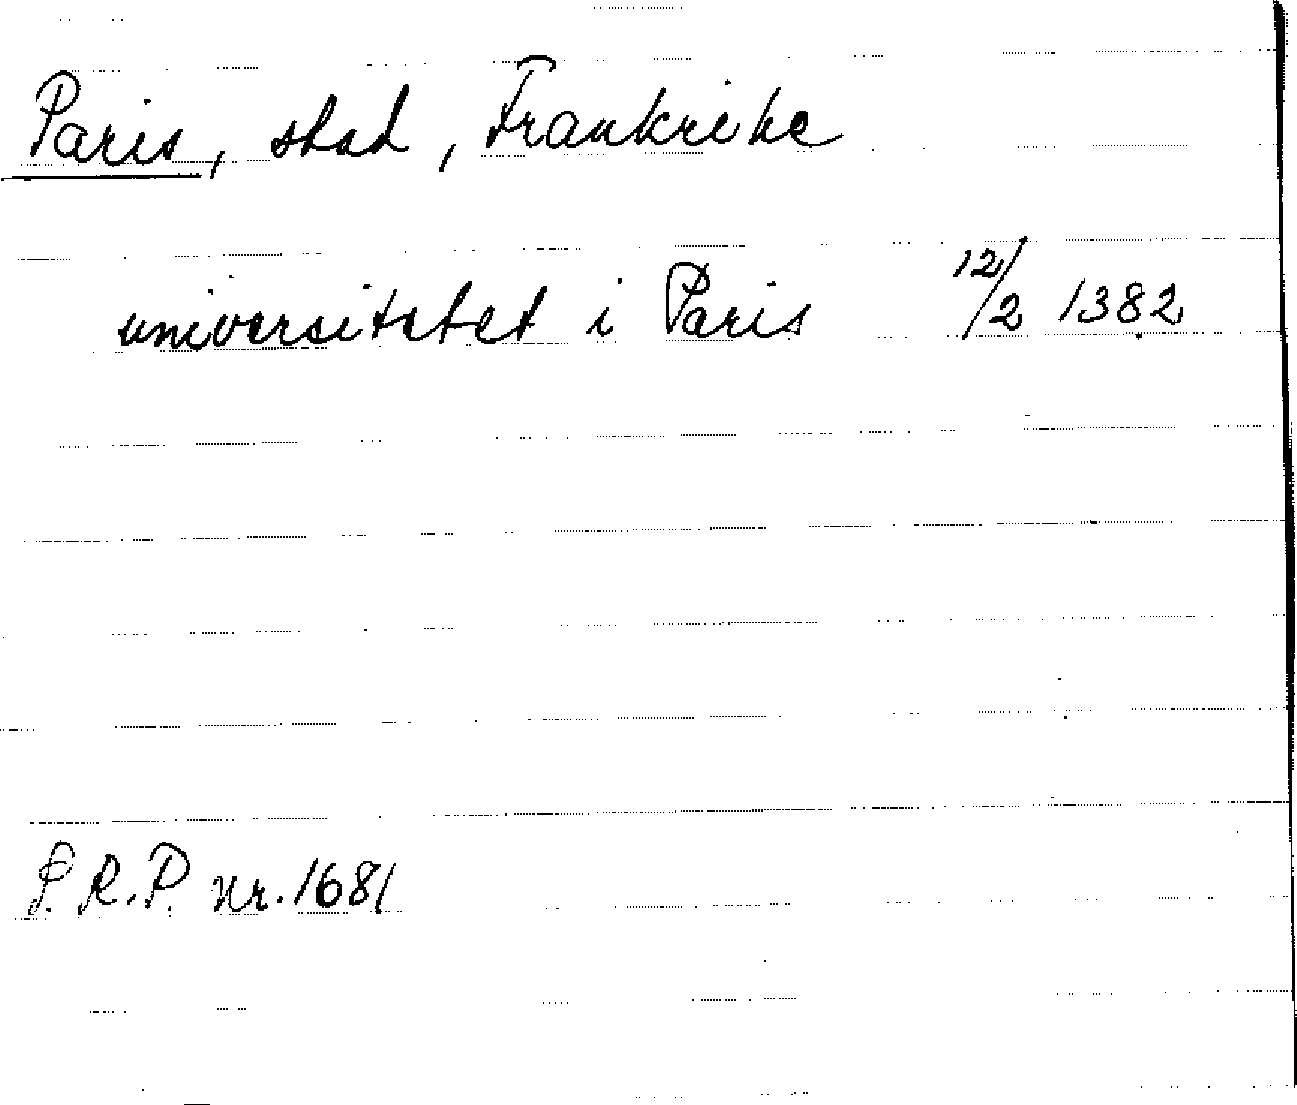 Paris, stad, Frankrike
universitetet i Paris 12/2 1382
P.R.P. nr. 1681